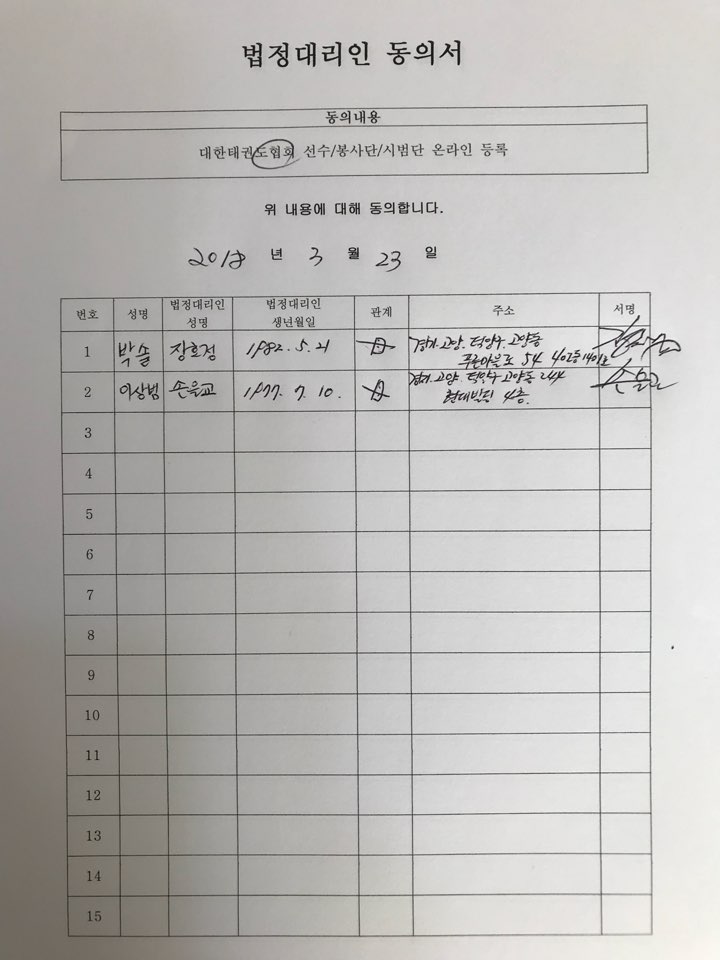 법정대리인 동의서
동의내용
대한태권도협회 선수/봉사단/시범단 온라인 등록
위 내용에 대해 동의합니다.
2018 년 3 월 23 일
번호 성명 법정대리인 성명 법정대리인 생년월일 관계 주소 서명
1 박솔 장효정 1982. 5. 21 母 경기. 고양. 덕양구. 고양동
54 402동 1401호
2 이상범 손을교 1977. 7. 10. 母 경기. 고양. 덕양구 고양동 244
현대빌딩 4층.
3
4
5
6
7
8
9
10
11
12
13
14
15